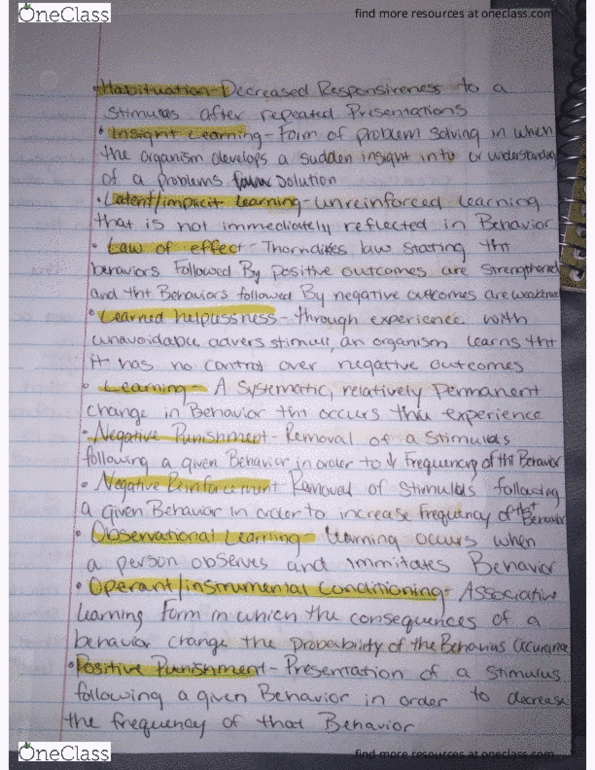 OneClass
find more resources at oneclass.com
• Habituation - Decreased Responsiveness to a
stimulas after repeated Presentations
• Insight Learning - Form of problem solving in which
the organism develops a sudden insight into or understanding
of a problems solution
• Latent/implicit learning - unreinforced learning
that is not immediately reflected in Behavior
• Law of effect - Thorndikes law stating tht
behaviors Followed By positive outcomes are strengthened
and tht Behaviors followed By negative outcomes are weakened
• Learned helplussness - through experience with
unavoidable advers stimuli, an organism learns tht
it has no control over negative outcomes
• Learning - A systematic, relatively permanent
change in Behavior tht occurs thru experience
• Negative Punishment - Removal of a Stimulas
following a given Behavior in order to ↓ Frequency of tht Behavior
• Negative Reinforcement - Removal of Stimulas following
a given Behavior in order to increase frequency of tht Behavior
• Observational Learning - Learning occurs when
a person observes and immitates Behavior
• Operant/instrumental Conditioning - Associative
learning form in which the consequences of a
behavior change the probability of the Behaviors
• Positive Punishment - Presentation of a stimulus
following a given Behavior in order to decrease
the frequency of that Behavior
OneClass
find more resources at oneclass.com